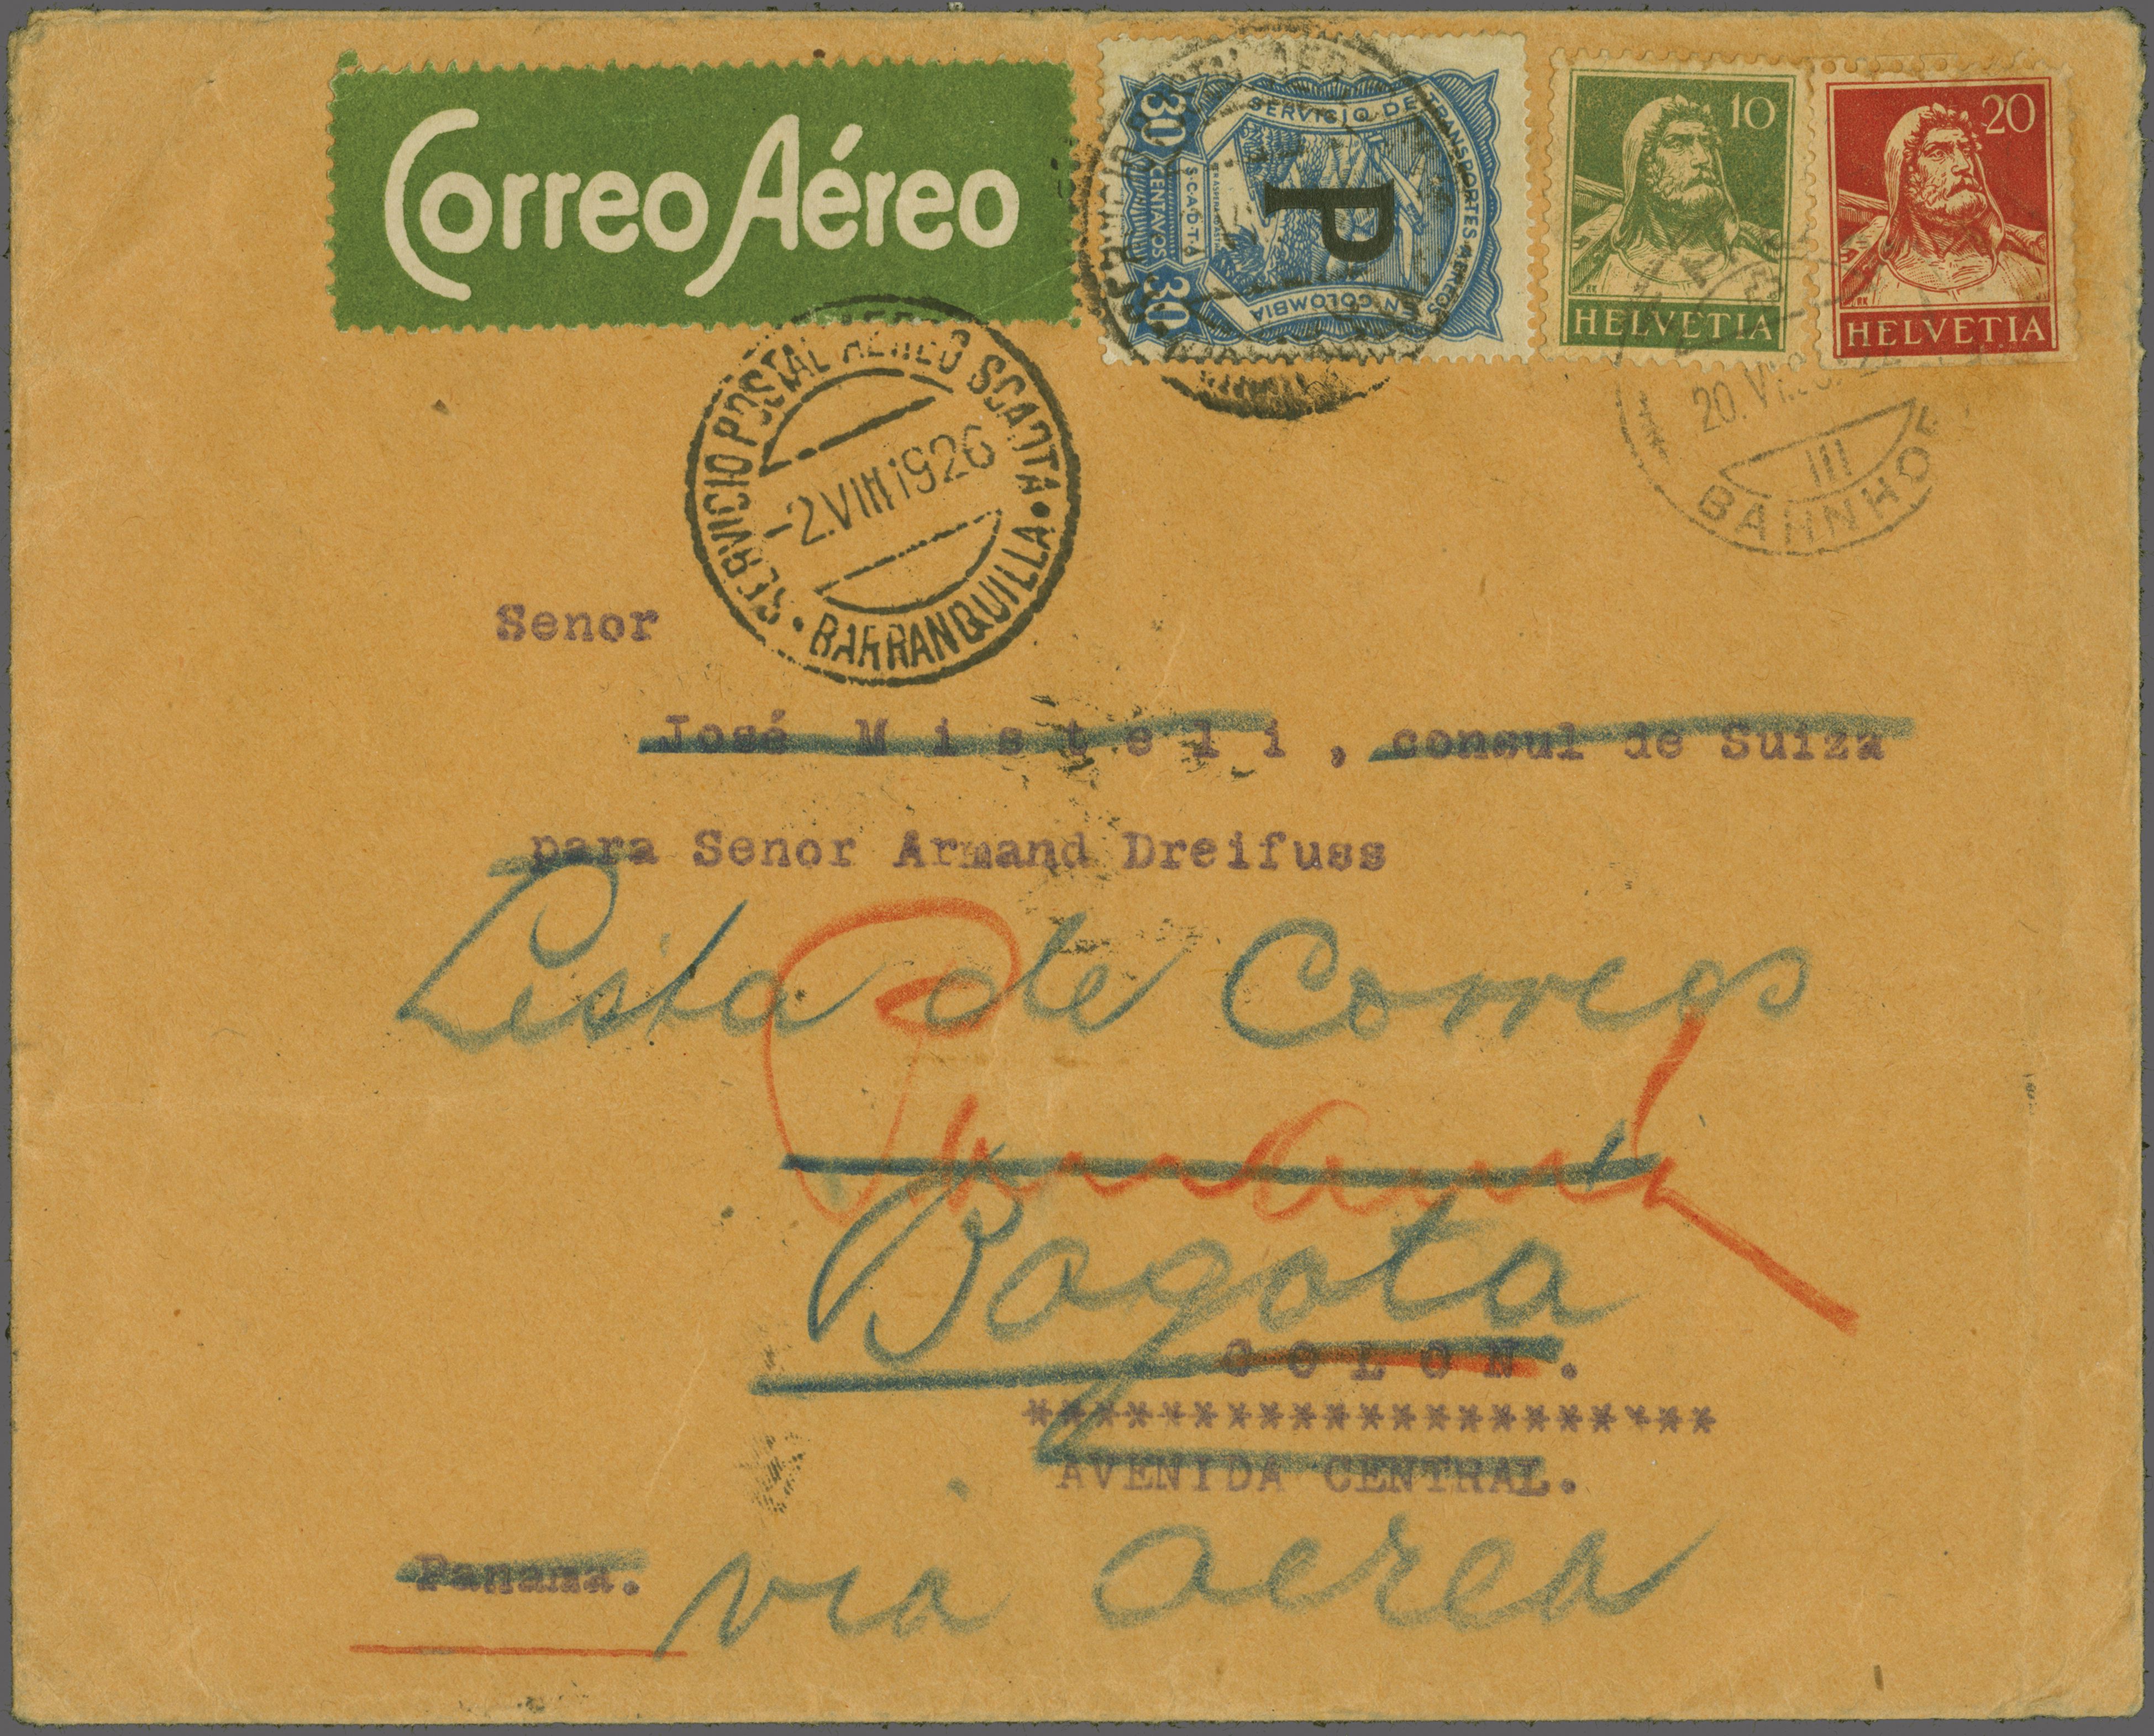 Correo Aéreo
SERVICIO DE TRANSPORTES AEREOS
EN COLOMBIA
30 CENTAVOS 30
P
10
HELVETIA
20
HELVETIA
SERVICIO POSTAL AEREO SCADTA
-2.VIII 1926
BARRANQUILLA
20. VII
III
BAHNHOF
Senor
José Misteli, consul de Suiza
para Senor Armand Dreifuss
Lista de Correos
Bogota
COLON.
*********************
AVENIDA CENTRAL.
Panama.
via aerea